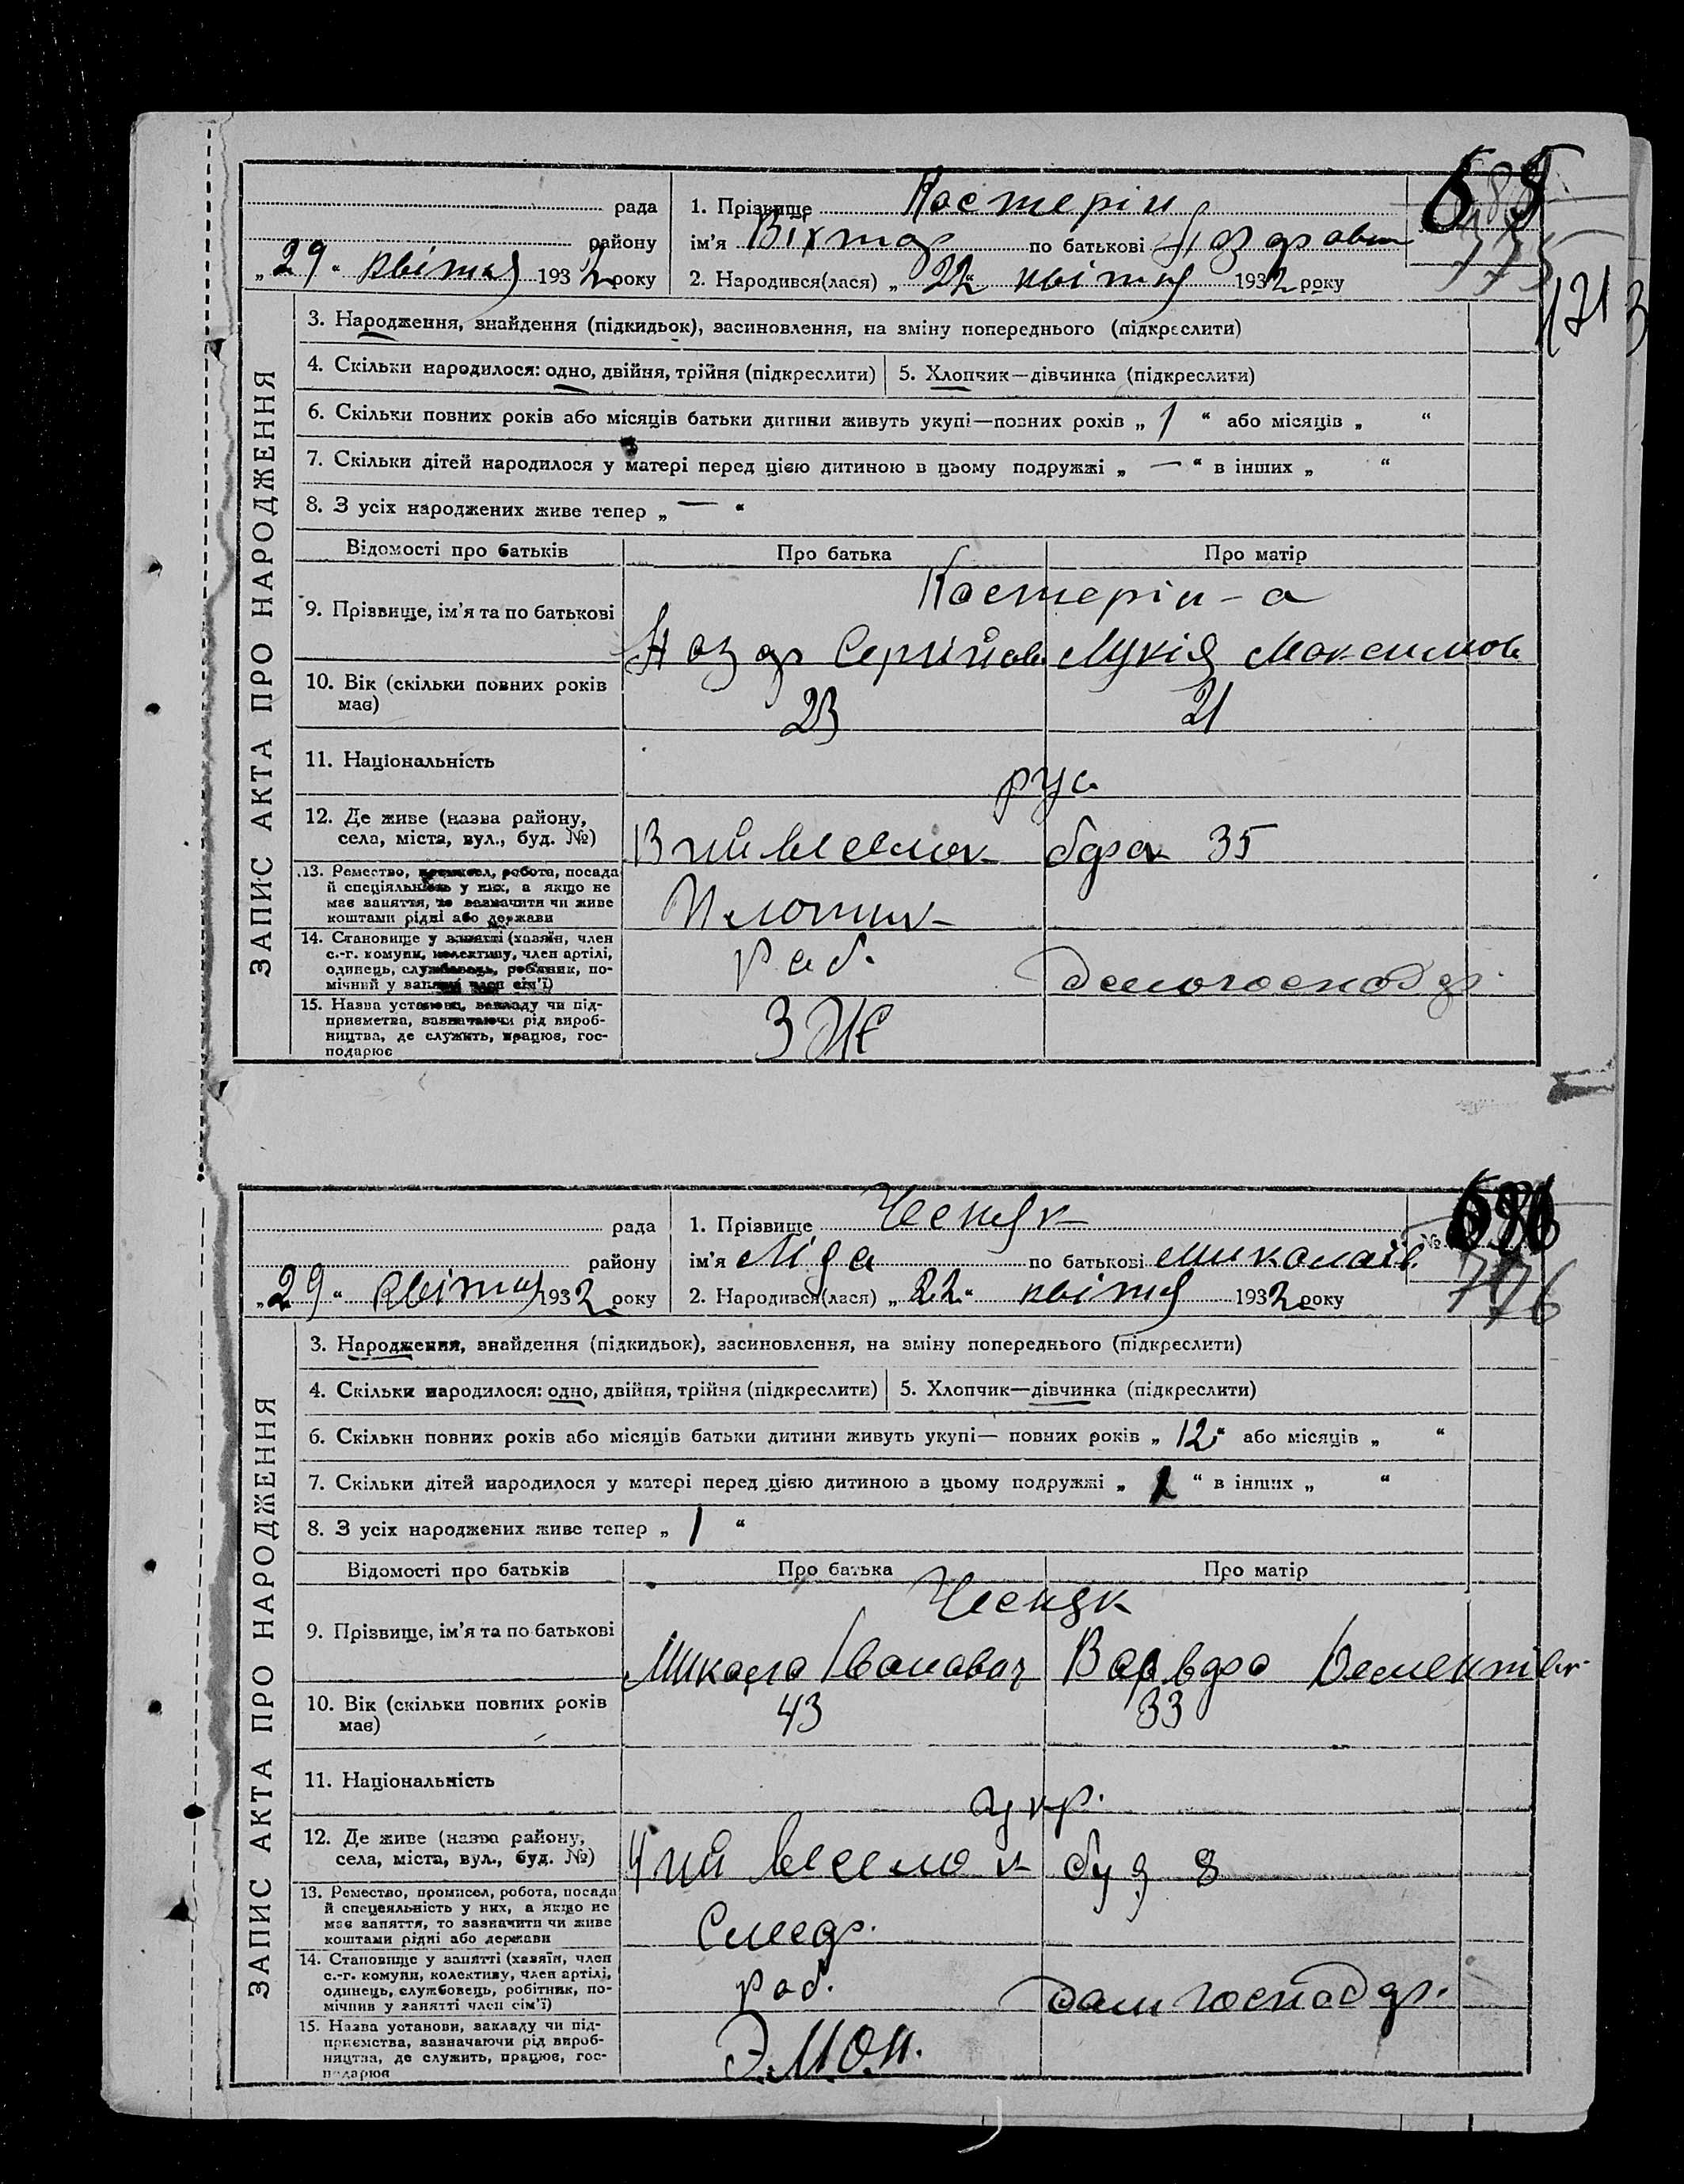 рада
району
„29“ квітня 1932 року
1. Прізвище Костерін
ім'я Віктор по батькові
2. Народився(лася) „22“ квітня 1932 року
775
1213
ЗАПИС АКТА ПРО НАРОДЖЕННЯ
3. Народження, знайдення (підкидьок), засиновлення, на зміну попереднього (підкреслити)
4. Скільки народилося: одно, двійня, трійня (підкреслити)
5. Хлопчик—дівчинка (підкреслити)
6. Скільки повних років або місяців батьки дитини живуть укупі—повних років „1“ або місяців „ “
7. Скільки дітей народилося у матері перед цією дитиною в цьому подружжі „—“ в інших „ “
8. З усіх народжених живе тепер „—“
Відомості про батьків
Про батька
Про матір
9. Прізвище, ім'я та по батькові
Костерін-а
Назар Сергійов
Лукія Максимов
10. Вік (скільки повних років
має)
23
21
11. Національність
рус.
12. Де живе (назва району,
села, міста, вул., буд. №)
селок барак 35
13. Ремество, промисел, робота, посада
й спеціяльність у них, а якщо не
має заняття, то зазначити чи живе
коштами рідні або держави
Плотник
14. Становище у занятті (хазяїн, член
с.-г. комуни, колективу, член артілі,
одинець, службовець, робітник, по-
мічний у занятті член сім'ї)
Раб.
домогосподар.
15. Назва установи, закладу чи під-
приємства, зазначаючи рід вироб-
ництва, де служить, працює, гос-
подарює
рада
району
„29“ квітня 1932 року
1. Прізвище Чесняк
ім'я Ліда по батькові Миколаїв.
2. Народився(лася) „22“ квітня 1932 року
№
776
ЗАПИС АКТА ПРО НАРОДЖЕННЯ
3. Народження, знайдення (підкидьок), засиновлення, на зміну попереднього (підкреслити)
4. Скільки народилося: одно, двійня, трійня (підкреслити)
5. Хлопчик—дівчинка (підкреслити)
6. Скільки повних років або місяців батьки дитини живуть укупі— повних років „12“ або місяців „ “
7. Скільки дітей народилося у матері перед цією дитиною в цьому подружжі „ “ в інших „ “
8. З усіх народжених живе тепер „1“
Відомості про батьків
Про батька
Про матір
9. Прізвище, ім'я та по батькові
Чесняк
Микола Іванович
Варвара
10. Вік (скільки повних років
має)
43
33
11. Національність
укр.
12. Де живе (назва району,
села, міста, вул., буд. №)
4ий веселок буд 8
13. Ремество, промисел, робота, посада
й спецеяльність у них, а якщо не
має заняття, то зазначити чи живе
коштами рідні або держави
14. Становище у занятті (хазяїн, член
с.-г. комуни, колективу, член артілі,
одинець, службовець, робітник, по-
мічнив у занятті член сім'ї)
Раб.
дом господар.
15. Назва установи, закладу чи під-
приємства, зазначаючи рід вироб-
ництва, де служить, працює, гос-
подарює